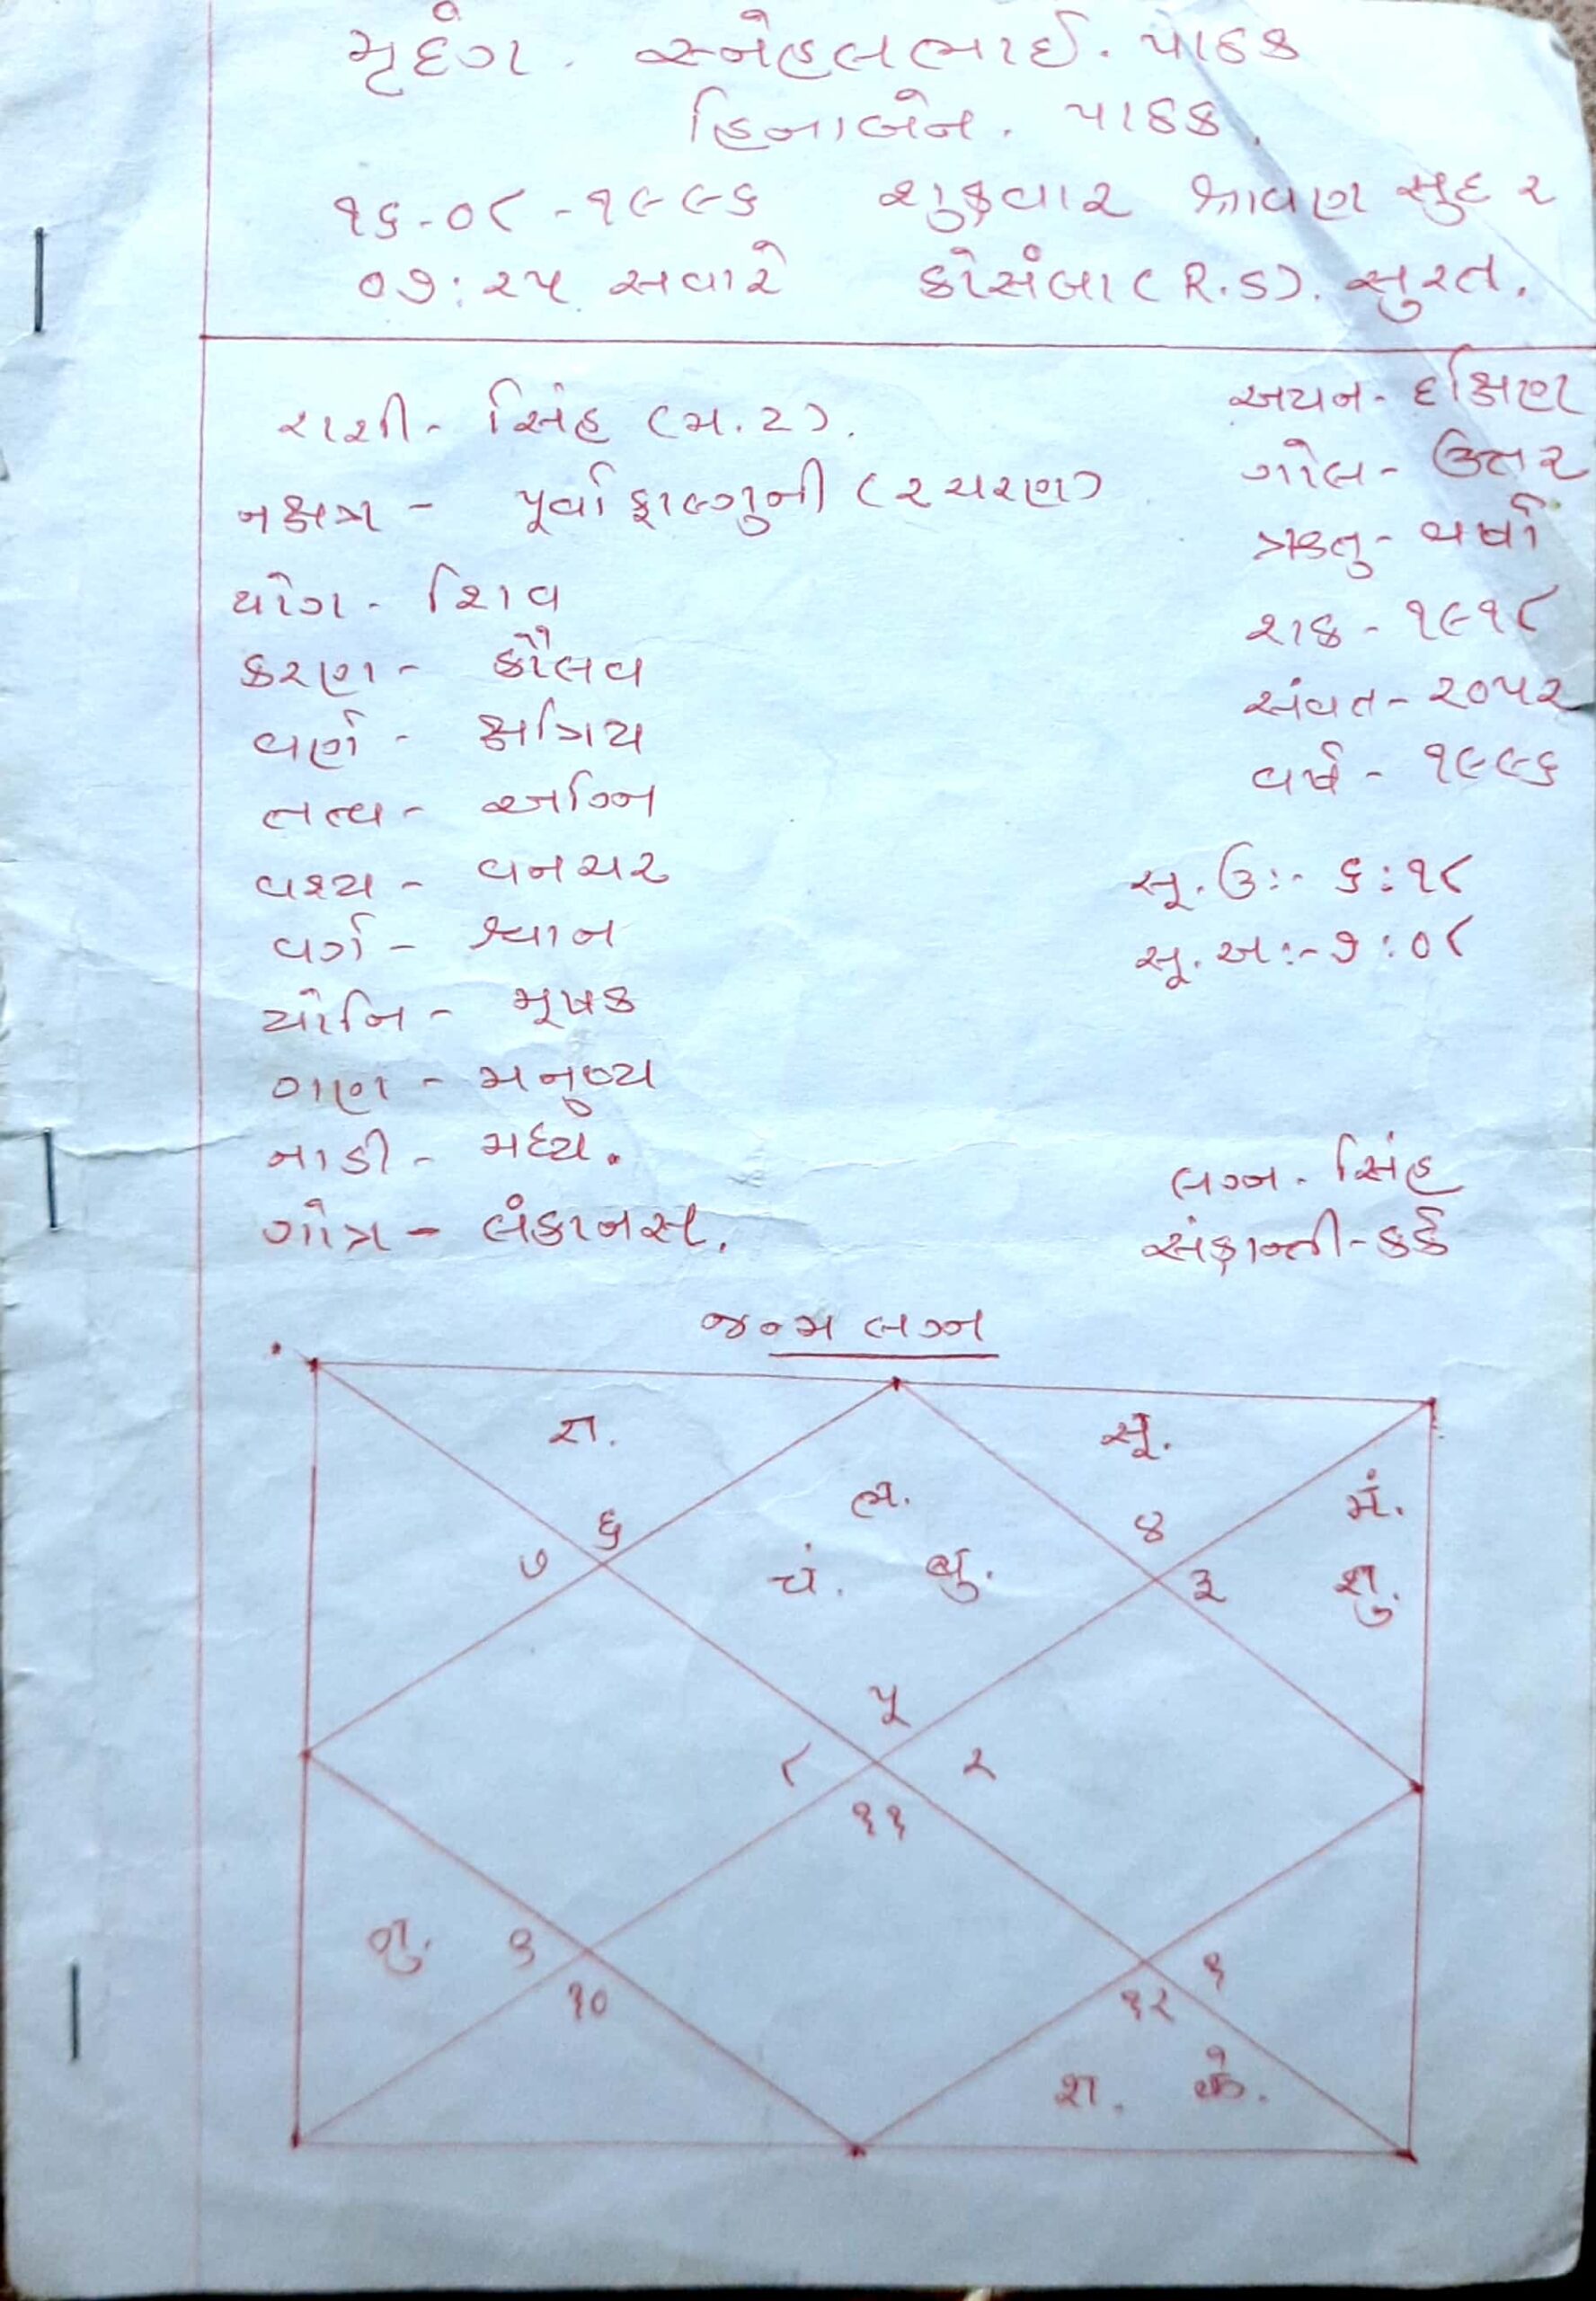 મૃદંગ. સ્નેહલભાઈ. પાઠક
હિનાબેન. પાઠક.
૧૬-૦૮-૧૯૯૬ શુક્રવાર શ્રાવણ સુદ ૨
૦૭:૨૫ સવારે કોસંબા (R.S). સુરત.
રાશી- સિંહ (મ.ટ).
નક્ષત્ર - પૂર્વા ફાલ્ગુની (૨ ચરણ)
યોગ- શિવ
કરણ- કૌલવ
વર્ણ - ક્ષત્રિય
તત્વ- અગ્નિ
વશ્ય - વનચર
વર્ગ - શ્વાન
યોનિ - મૂષક
ગણ - મનુષ્ય
નાડી - મધ્ય.
ગોત્ર - લંકાનસ.
અયન- દક્ષિણ
ગોલ- ઉત્તર
ઋતુ- વર્ષા
શાક - ૧૯૧૮
સંવત- ૨૦૫૨
વર્ષ - ૧૯૯૬
સૂ.ઉ:- ૬:૧૮
સૂ.અ:- ૭:૦૮
લગ્ન- સિંહ
સંક્રાન્તી-કર્ક
જન્મ લગ્ન
રા. સૂ.
લ. મં.
૬ ૪
૭ ચં. બુ. ૩ શુ.
૫
૮ ૨
૧૧
ગુ. ૯ ૧
૧૦ ૧૨
શ. કે.